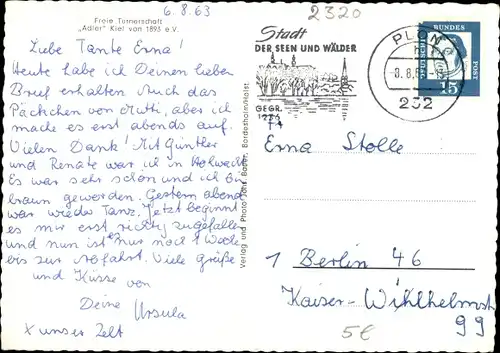 6.8.63
2320
Freie Turnerschaft
„Adler" Kiel von 1893 e.v.
Liebe Tante Erna!
Heute habe ich Deinen lieben
Brief erhalten Auch das
Päckchen von Mutti, aber ich
mache es erst abends auf.
Vielen Dank! Mit Günther
und Renate war ich in Hohwacht
Es war sehr schön und ich bin
braun geworden. Gestern abend
war wieder Tanz. Jetzt beginnt
es mir erst richtig zugefallen
und nun ist es nur noch 1 Woche
bis zur Abfahrt. Viele Grüße
und Küsse von
Deine Ursula
x unser Zelt
Verlag und Photo Bordesholm/Holst.
Stadt
DER SEEN UND WÄLDER
GEGR.
1236
PLÖN
-8.8.63
232
DEUTSCHE BUNDESPOST
15
Erna Stolle
1 Berlin 46
Kaiser-Wihlhelmst
99
5€